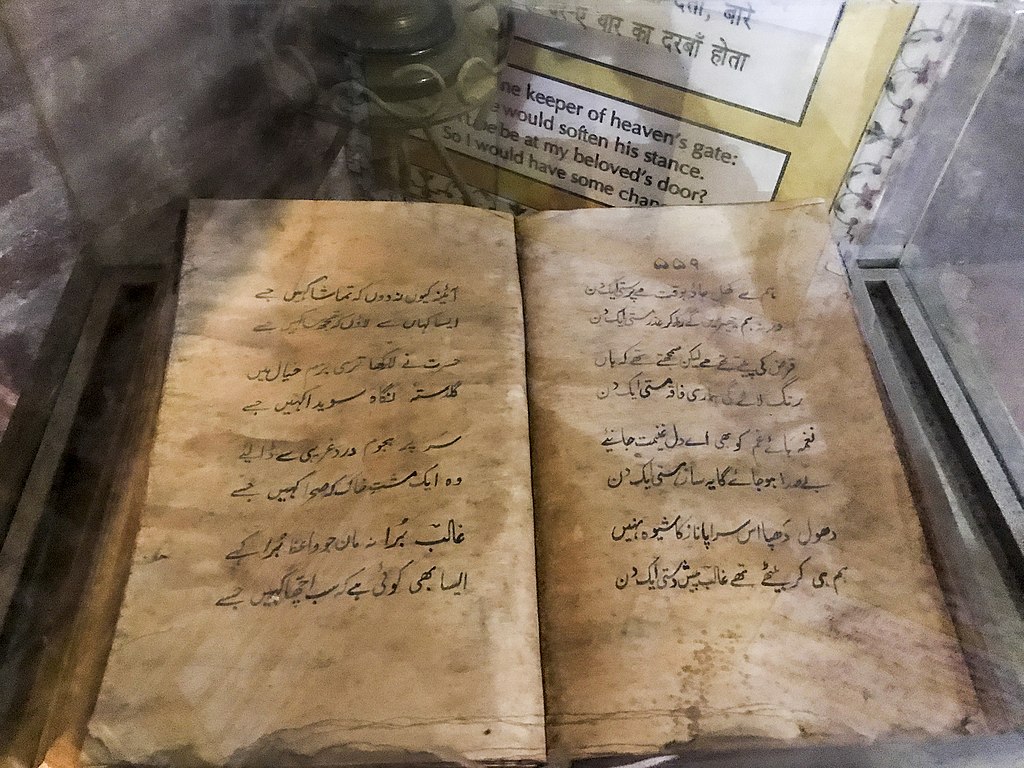 बारे
यार का दरबाँ होता
keeper of heaven's gate:
would soften his stance.
be at my beloved's door?
So I would have some
۵۵۹
ہم سے کھل جاؤ بوقت مے پرستی ایک دن
ورنہ ہم چھیڑیں گے رکھ کر عذر مستی ایک دن
قرض کی پیتے تھے مے لیکن سمجھتے تھے کہ ہاں
رنگ لائے گی ہماری فاقہ مستی ایک دن
نغمہ ہائے غم کو بھی اے دل غنیمت جانیئے
بے صدا ہو جائے گا یہ ساز ہستی ایک دن
دھول دھپا اس سراپا ناز کا شیوہ نہیں
ہم ہی کر بیٹھے تھے غالبؔ پیش دستی ایک دن
آئینہ کیوں نہ دوں کہ تماشا کہیں جسے
ایسا کہاں سے لاؤں کہ تجھ سا کہیں جسے
حسرت نے لا رکھا تری بزم خیال میں
گلدستہ نگاہ سویدا کہیں جسے
سر پر ہجوم درد غریبی سے ڈالیے
وہ ایک مشتِ خاک کہ صحرا کہیں جسے
غالبؔ بُرا نہ مان جو واعظ بُرا کہے
ایسا بھی کوئی ہے کہ سب اچھا کہیں جسے